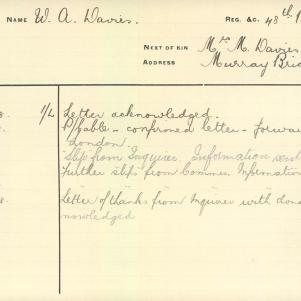 NAME W. A. Davies. REG. &C. 48th
NEXT OF KIN Mrs M. Davies
ADDRESS Murray
8. 1/L Letter acknowledged.
8. P/pable - confirmed letter - Forwar
London.
Slip from Enquirer. Information
Further slip from Commrs. Information
8. Letter of thanks from Enquirer with dona
nowledged